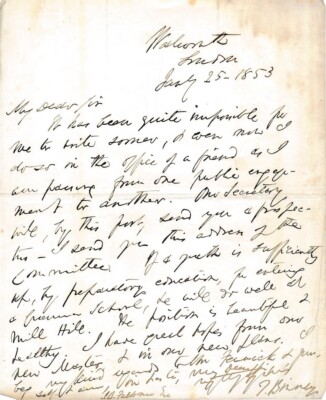 Walworth
London
July 25 - 1853
My dear Sir
It has been quite impossible for
me to write sooner, & even now I
do so in the office of a friend as I
am passing from one public engage-
ment to another. Our Secretary
will, by this post, send you a prospec-
tus - I send you this address of the
Committee. If a youth is sufficiently
up, by preparatory education, for entering
a Grammar School, he will do well at
Mill Hill. The position is beautiful &
healthy. I have great hopes from our
new Master & in our new plans. I
beg my kind regards to
T Binney